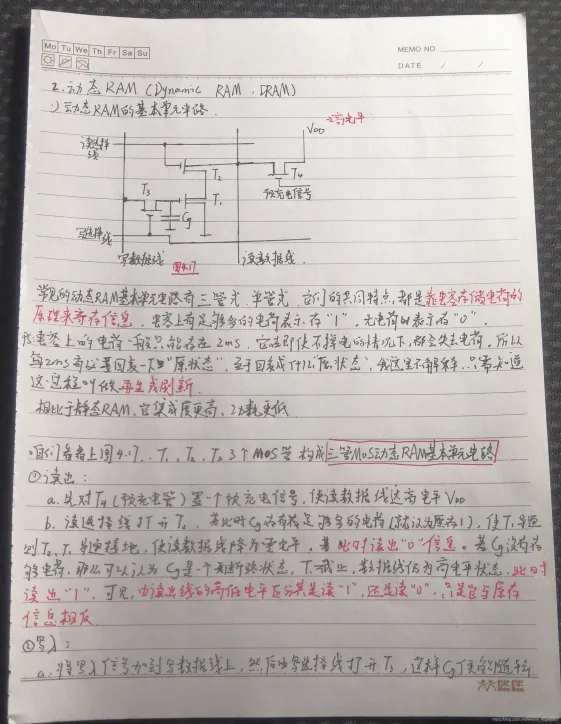 Mo Tu We Th Fr Sa Su
MEMO NO.
DATE / /
2. 动态RAM (Dynamic RAM, DRAM)
1) 动态RAM的基本单元电路.
高电平
VDD
读选择
线
T2
T4
预充电信号
T3
T1
Cg
写选择线
写数据线
图4.17
读数据线
常见的动态RAM基本单元电路有三管式 单管式 它们的共同特点,都是靠电容存储电荷的
原理来寄存信息. 电容上有足够多的电荷表示存"1", 无电荷时表示存"0".
电容上的电荷一般只能维持2ms, 它即使不掉电的情况下,都会失去电荷,所以
每2ms有必要回复一下"原状态", 至于回复成什么"原状态",我这里不解释...只需知道
这一过程叫做再生或刷新.
相比于静态RAM, 它集成度更高, 功耗更低.
咱们看看上图4.17, T1, T2, T3 3个MOS管 构成三管MOS动态RAM基本单元电路
①读出:
a. 先对T4 (预充电管) 置一个预充电信号, 使读数据线达高电平VDD
b. 读选择线打开T2, 若此时Cg存有足够多的电荷(就认为原存1), 使T1导通
则T2, T1导通接地, 使读数据线降为零电平, 若此时读出"0"信息. 若Cg没有存
够电荷, 那么可以认为Cg是个断路状态, T1截止, 数据线仍为高电平状态. 此时
读出"1". 可见, 由读出线的高低电平区分其是读"1", 还是读"0", 只是它与原存
信息相反.
②写入:
a. 将写入信号加到写数据线上, 然后由写选择线打开T3, 这样Cg便能随